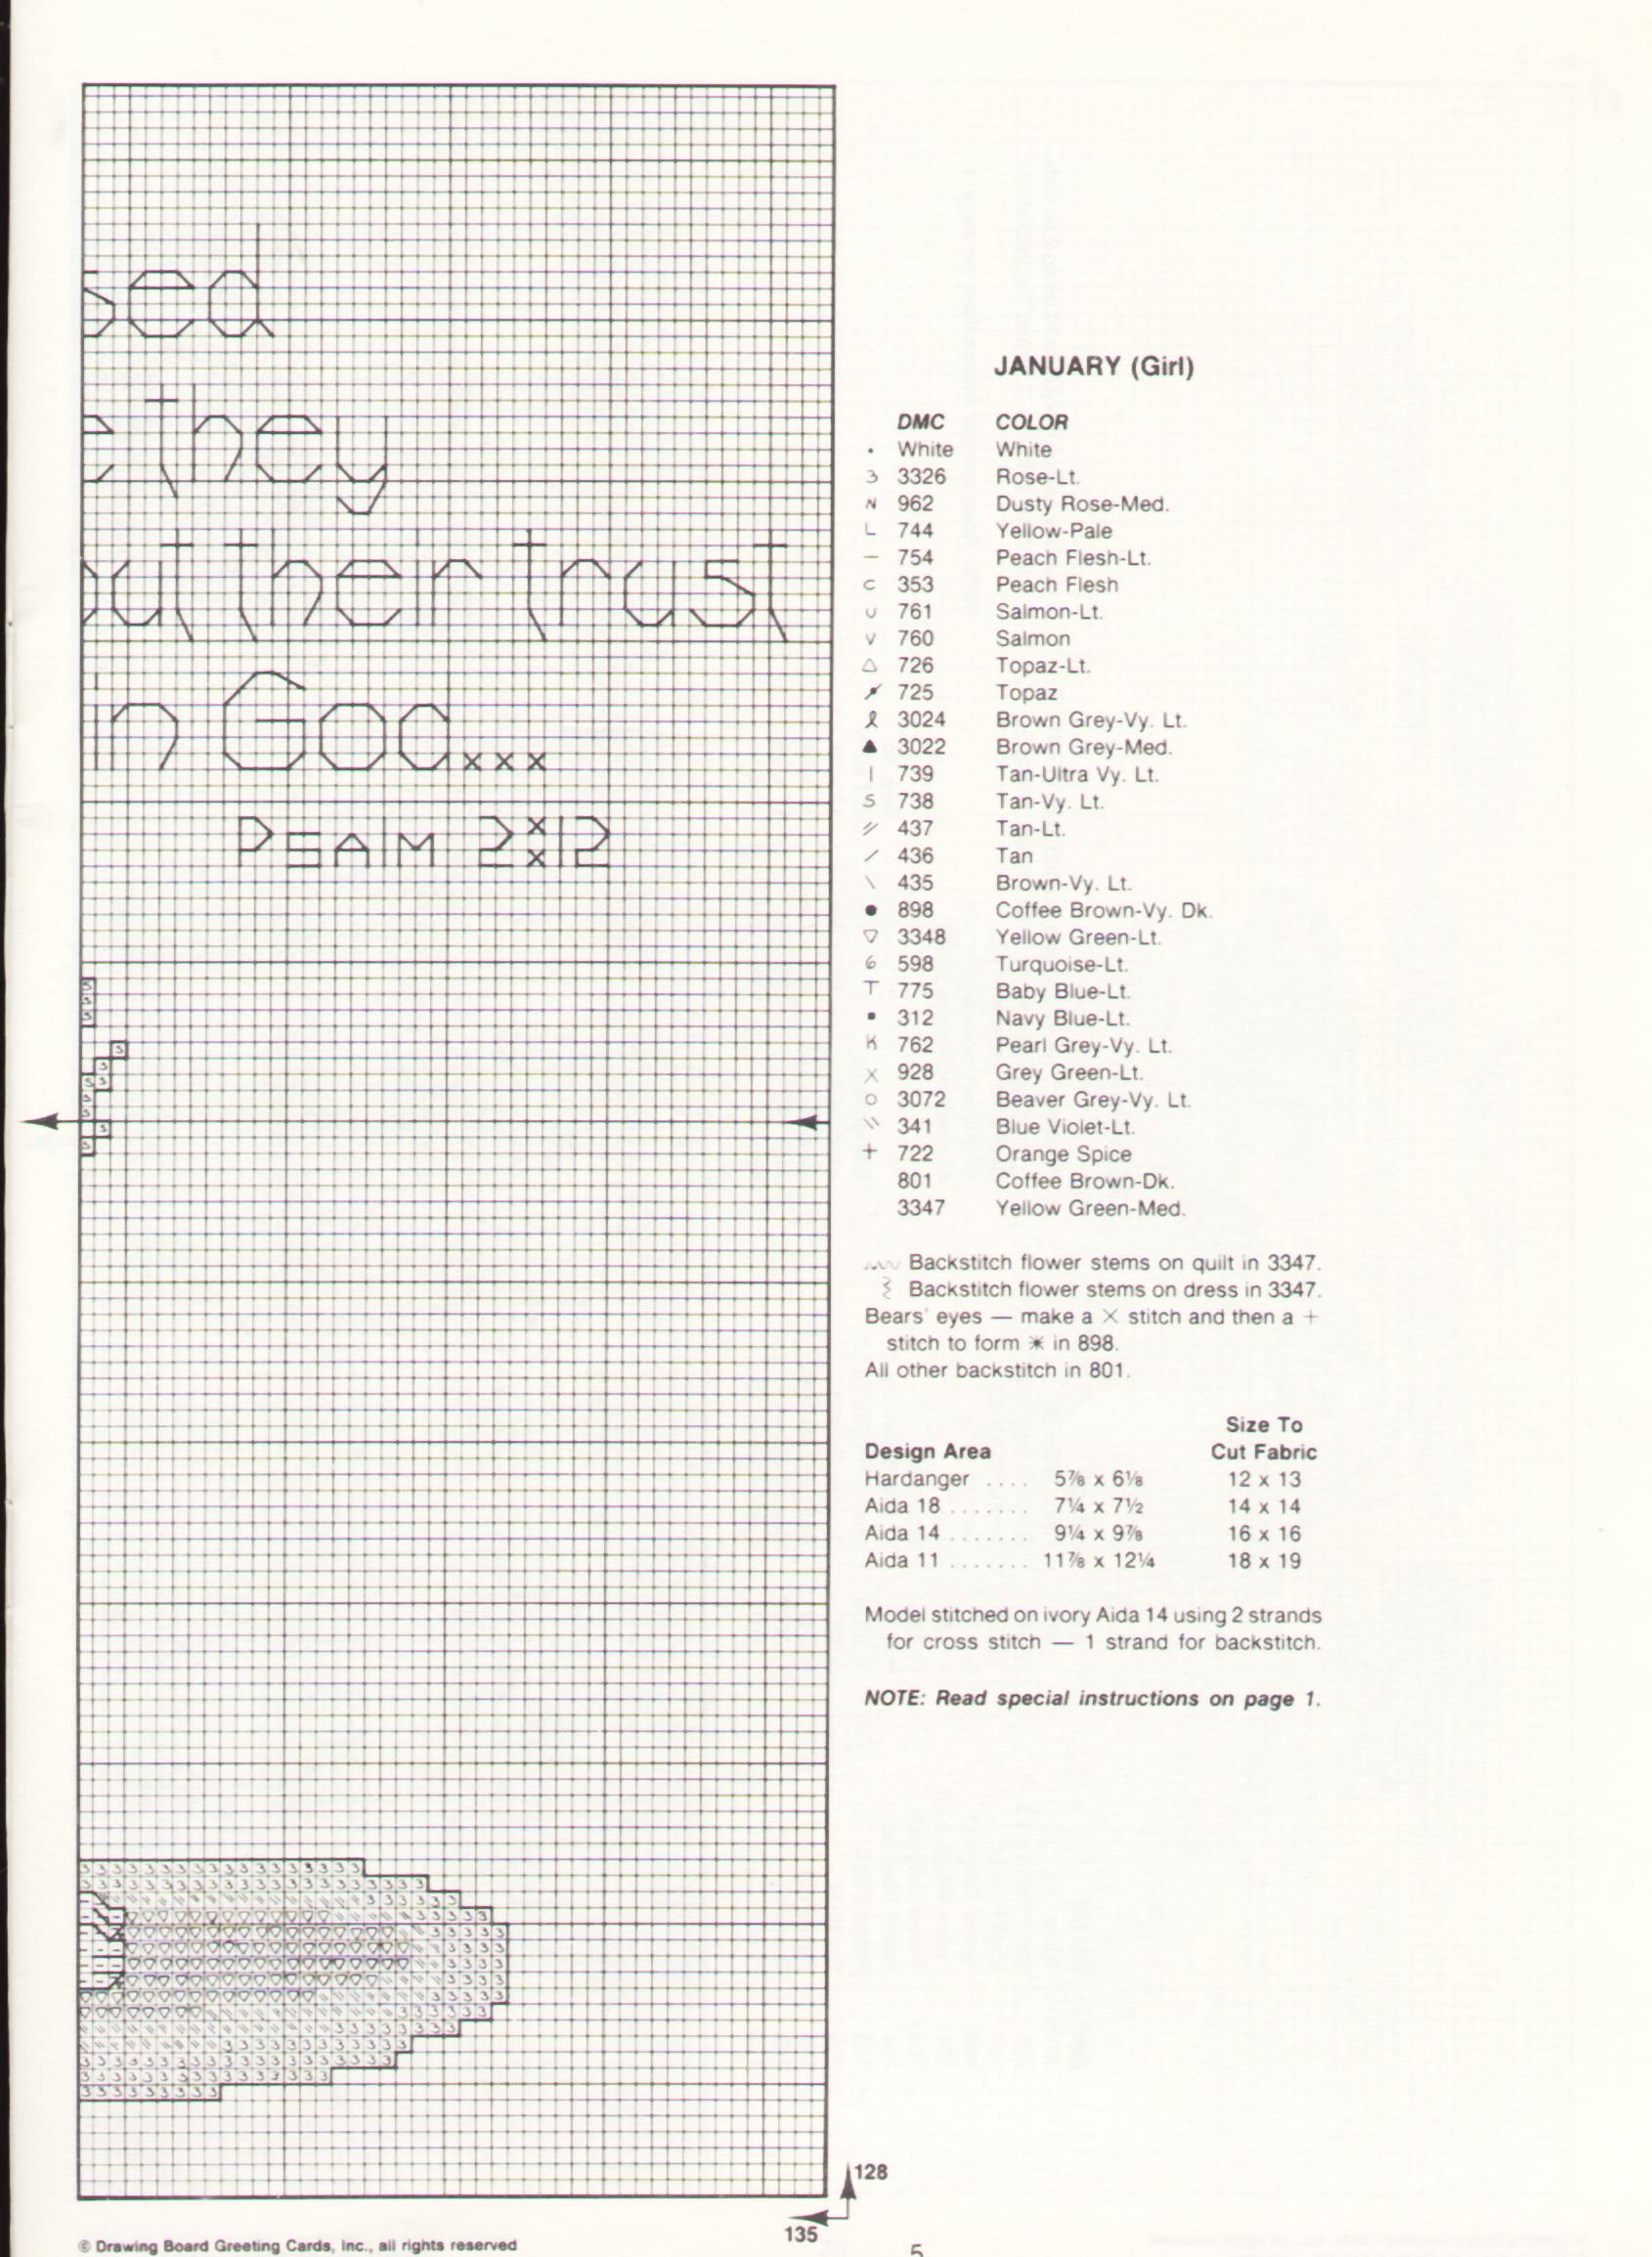 sed
e they
put their trust
in God...
PSAlM 2:12
JANUARY (Girl)
DMC COLOR
• White White
3 3326 Rose-Lt.
N 962 Dusty Rose-Med.
L 744 Yellow-Pale
– 754 Peach Flesh-Lt.
c 353 Peach Flesh
∪ 761 Salmon-Lt.
v 760 Salmon
△ 726 Topaz-Lt.
725 Topaz
3024 Brown Grey-Vy. Lt.
▲ 3022 Brown Grey-Med.
| 739 Tan-Ultra Vy. Lt.
S 738 Tan-Vy. Lt.
⫽ 437 Tan-Lt.
/ 436 Tan
\ 435 Brown-Vy. Lt.
● 898 Coffee Brown-Vy. Dk.
▽ 3348 Yellow Green-Lt.
6 598 Turquoise-Lt.
T 775 Baby Blue-Lt.
• 312 Navy Blue-Lt.
K 762 Pearl Grey-Vy. Lt.
× 928 Grey Green-Lt.
○ 3072 Beaver Grey-Vy. Lt.
\\ 341 Blue Violet-Lt.
+ 722 Orange Spice
801 Coffee Brown-Dk.
3347 Yellow Green-Med.
Backstitch flower stems on quilt in 3347.
Backstitch flower stems on dress in 3347.
Bears' eyes — make a × stitch and then a +
stitch to form ✳ in 898.
All other backstitch in 801.
Size To
Design Area Cut Fabric
Hardanger .... 5⅞ x 6⅛ 12 x 13
Aida 18 ....... 7¼ x 7½ 14 x 14
Aida 14 ....... 9¼ x 9⅞ 16 x 16
Aida 11 ....... 11⅞ x 12¼ 18 x 19
Model stitched on ivory Aida 14 using 2 strands
for cross stitch — 1 strand for backstitch.
NOTE: Read special instructions on page 1.
128
135
© Drawing Board Greeting Cards, Inc., all rights reserved
5